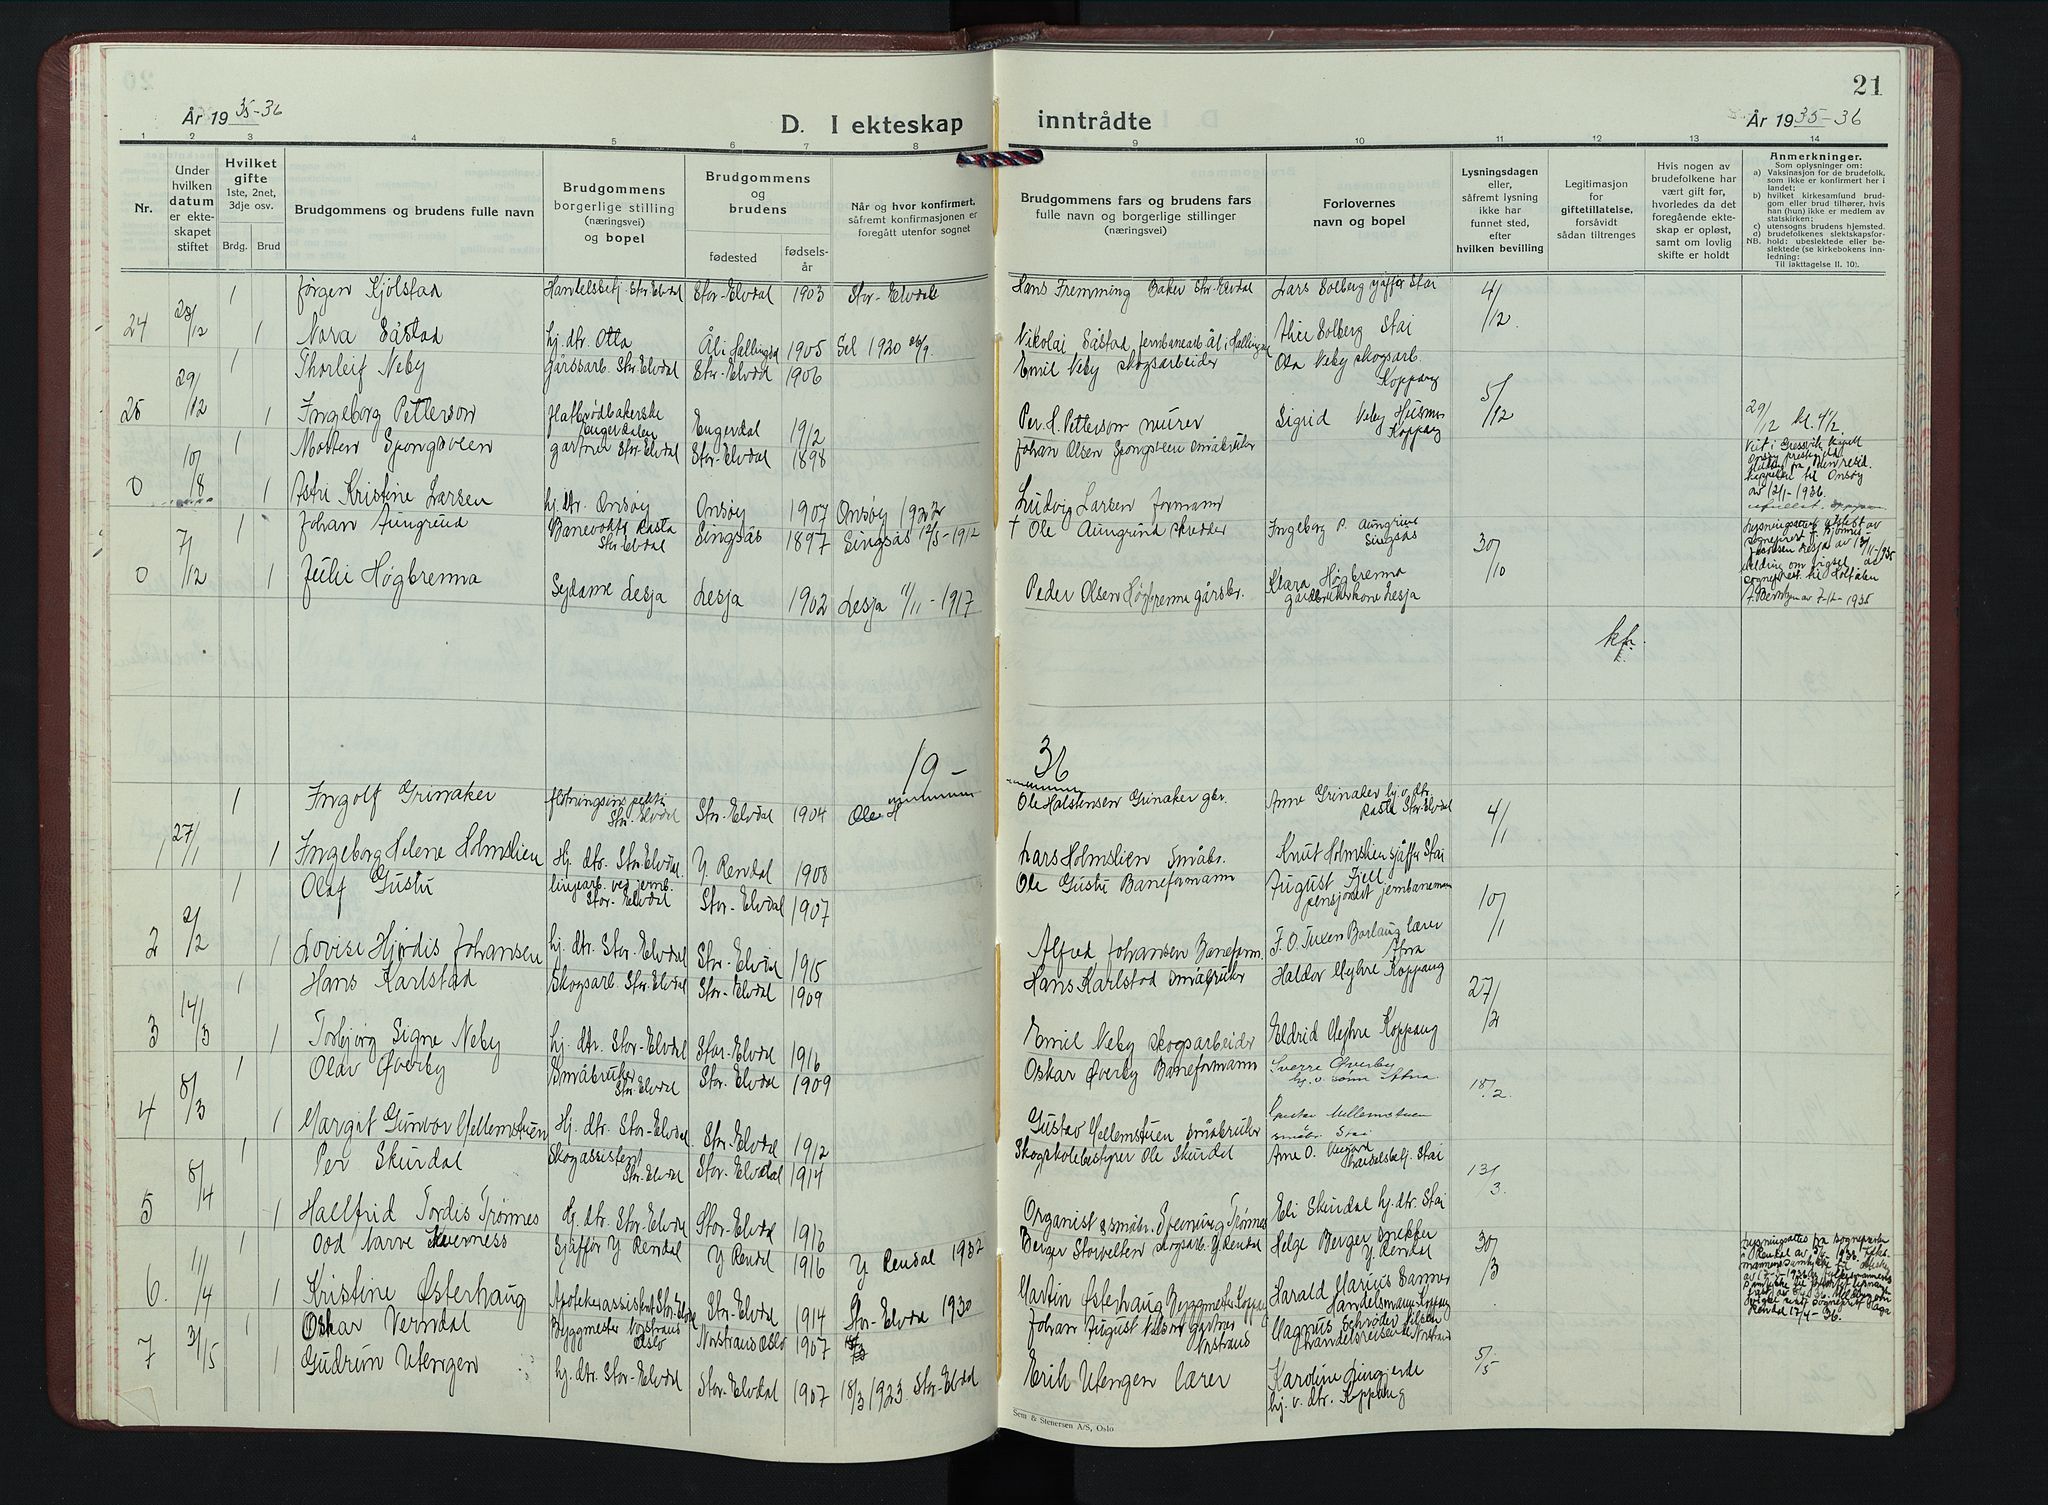 21
År 1935-36
D. I ekteskap inntrådte
År 1935-36
1 2 3 4 5 6 7 8 9 10 11 12 13 14
Nr.
Under hvilken datum er ekteskapet stiftet
Hvilket gifte
1ste, 2net, 3dje osv.
Brdg. Brud
Brudgommens og brudens fulle navn
Brudgommens borgerlige stilling (næringsvei) og bopel
Brudgommens og brudens
fødested
fødsels-år
Når og hvor konfirmert, såfremt konfirmasjonen er foregått utenfor sognet
Brudgommens fars og brudens fars fulle navn og borgerlige stillinger (næringsvei)
Forlovernes navn og bopel
Lysningsdagen eller, såfremt lysning ikke har funnet sted, efter hvilken bevilling
Legitimasjon for giftetillatelse, forsåvidt sådan tiltrenges
Hvis nogen av brudefolkene har vært gift før, hvorledes da det foregående ekteskap er opløst, samt om lovlig skifte er holdt
Anmerkninger.
Som oplysninger om:
a) Vaksinasjon for de brudefolk, som ikke er konfirmert her i landet;
b) hvilket kirkesamfund brudgom eller brud tilhører, hvis han (hun) ikke er medlem av statskirken;
c) utensogns brudens hjemsted.
d) brudefolkenes slektskapsforhold: ubeslektede eller beslektede (se kirkebokens innledning:
NB.
Til iakttagelse II. 10).
1 Jørgen Kjølstad Handelsbetj. Stor-Elvdal Stor-Elvdal 1903 Stor-Elvdal Hans Fremming Baker Stor-Elvdal Lars Solberg sjåffør Stai 4/12
24 28/12 1 Nora Såstad hj. dtr. Otta Ål i Hallingdal 1905 Sel 1920 26/9. Nikolai Såstad jernbanearb. Ål i Hallingdal Alice Solberg Stai
1 Thorleif Neby Gårdsarb. Stor-Elvdal Stor-Elvdal 1906 Emil Neby skogsarbeider Ola Neby skogsarb. Koppang 5/12
25 29/12 1 Ingeborg Petterson Flatbrødbakerske Engerdalen Engerdal 1912 Per H. Petterson murer Sigrid Neby Husmor Koppang 29/12 kl. 4 1/2
1 Morten Spongsveen gartner Stor-Elvdal Stor-Elvdal 1898 Johan Olsen Spongsveen småbruker
0 10/8 1 Astri Kristine Larsen hj. dtr. Onsøy Onsøy 1907 Onsøy 1922 Ludvig Larsen formann
av 12/1-1936.
1 Johan Aungrind Banevokt. Rasta Stor-Elvdal Singsås 1897 Singsås 12/5-1912 † Ole Aungrind skredder Ingeborg P. Aungrind Singsås 30/10
0 7/12 1 Julie Høgbrenna Sydame Lesja Lesja 1902 Lesja 11/11-1917 Peder Olsen Høgbrenna gårdbr. Klara Høgbrenna gårdbrukerkone Lesja
av 7-12-1935
kfr.
19-36
1 Ingolf Grinaker fløtningsinspektør Stor-Elvdal Stor-Elvdal 1904 Ole H Ole Halstensen Grinaker gbr. Anne Grinaker hj. v. dtr. Rasta Stor-Elvdal 4/1
1 27/1 1 Ingeborg Helene Holmslien Hj. dtr. Stor-Elvdal Y. Rendal 1908 Lars Holmslien Småbr. Knut Holmslien sjåffør Stai
1 Olaf Gustu linjearb. ved jernb. Stor-Elvdal Stor-Elvdal 1907 Ole Gustu Baneformann August Fjell pensjonist jernbanemann 10/1
2 2/2 1 Lovise Hjørdis Johansen hj. dtr. Stor-Elvdal Stor-Elvdal 1915 Alfred Johansen Baneform. F. O. Tuxen Borlaug lærer Atna
1 Hans Karlstad Skogsarb. Stor-Elvdal Stor-Elvdal 1909 Hans Karlstad småbruker Haldor Myhre Koppang 27/2
3 14/3 1 Torbjørg Signe Neby hj. dtr. Stor-Elvdal Stor-Elvdal 1916 Emil Neby skogsarbeider Eldrid Myhre Koppang
1 Olav Øverby Småbruker Stor-Elvdal Stor-Elvdal 1909 Oskar Øverby Baneformann Sverre Øverby hj. v. sønn Atna 18/2.
4 8/3 1 Margit Gunvor Mellemstuen Hj. dtr. Stor-Elvdal Stor-Elvdal 1912 Gustav Mellemstuen småbruker Mellemstuen småbr. Stai
1 Per Skurdal Skogassistent Stor-Elvdal Stor-Elvdal 1914 Skogskolebestyrer Ole Skurdal Arne O. handelsbetj. Stai 13/3.
5 8/4 1 Hallfrid Tordis Trønnes Hj. dtr. Stor-Elvdal Stor-Elvdal 1916 Organist & småbr. Flemming Trønnes Eli Skurdal hj. dtr. Stai
1 Odd Narve Kverness Sjåffør Y Rendal Y Rendal 1916 Y Rendal 1932 Berger Storvelten skogsarb. Y. Rendal Helge Berger snekker Y. Rendal 30/3
6. 11/4 1 Kristine Østerhaug Apotekerassistent Stor-Elvdal Stor-Elvdal 1914 Stor-Elvdal 1930 Martin Østerhaug Byggmester Koppang Harald Marius Sanner Handelsmann Koppang
Rendal 17/4-36.
1 Oskar Verndal Byggmester Nordstrand Oslo Nordstrand Oslo 1907 Johan August Nilsen gartner Nordstrand Magnus Schrøder Nilsen handelsreisende Nordstrand
7 31/5 1 Gudrun Utengen hj. dtr. Stor-Elvdal Stor-Elvdal 1907 18/3 1923. Stor-Elvdal Erik Utengen lærer Karoline hj. v. dtr. Koppang 5/5
Sem & Stenersen A/S, Oslo